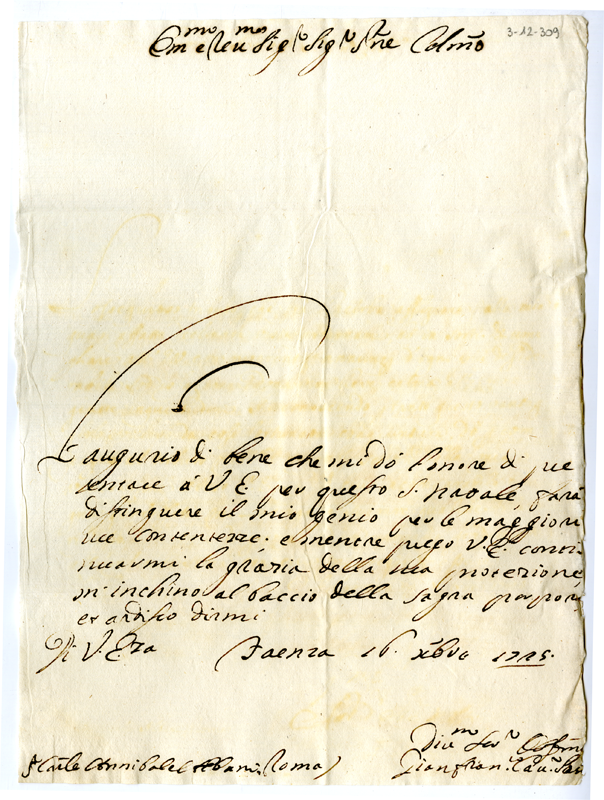 3-12-309
Em.mo e Reu.mo Sig.r Sig.r P.ne Colmo
L'augurio di bene che mi dò l'onore di pre
sentare à V. E. per questo S. Natale, farà
distinguere il mio genio per le maggiori
sue contentezze. e mentre prego V. E. conti
nuarmi la grazia della sua protezione,
m'inchino al baccio della sagra porpora
et ardisco dirmi
Di V. Eza Faenza 16. Xbre 1725.
Diu.mo Ser.re
S.r Car.le Annibale Albani (Roma) Gianfran.co Cau.